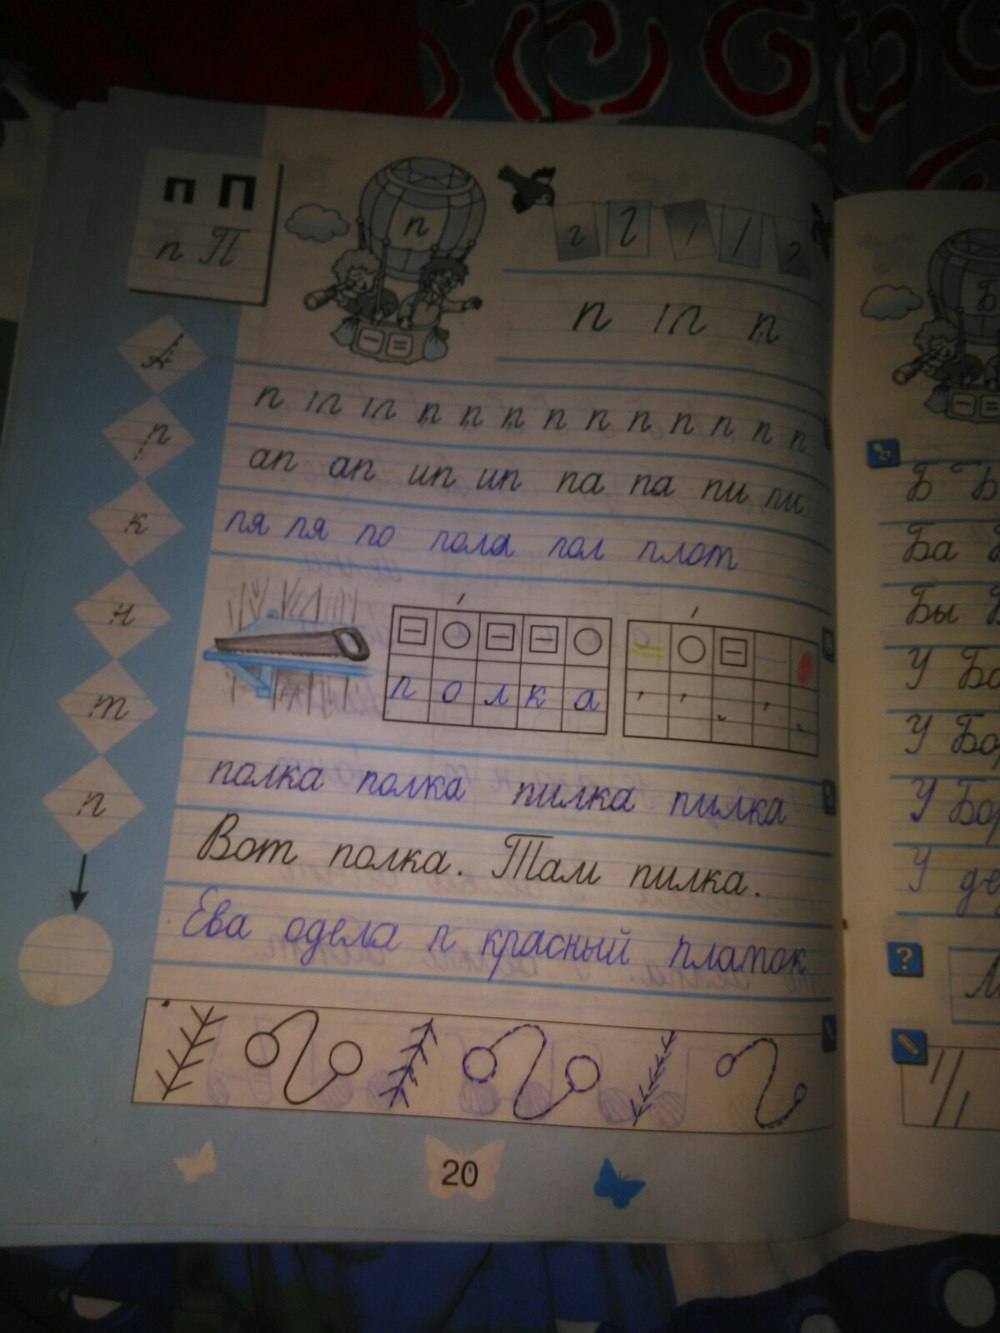 п П
п П
п
г Г
п п п
А
р
к
н
т
п
п п п п п п п п п п п п п
ап ап ип ип па па пи пи
пя пя по пола пол плот
п о л к а
полка полка пилка пилка
Вот полка. Там пилка.
Ева одела п красный платок
20
Б
Б Б
Ба
Бы
У
У
У Бор
У
?